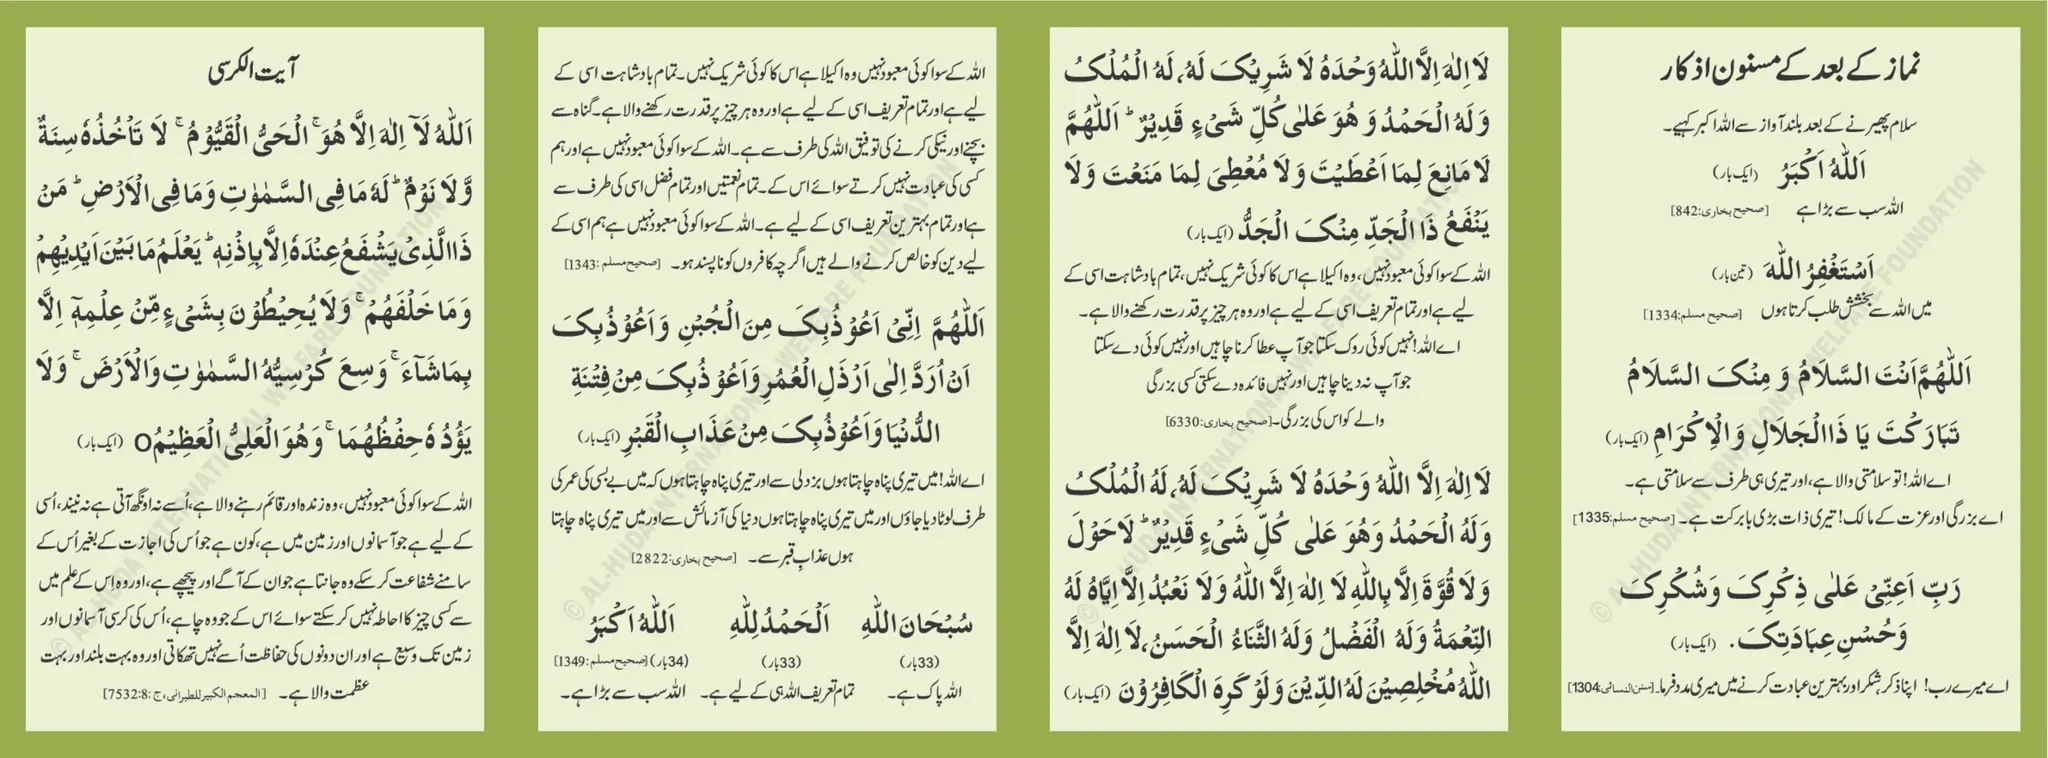 نماز کے بعد کے مسنون اذکار
سلام پھیرنے کے بعد بلند آواز سے اللہ اکبر کہیے۔
اَللّٰهُ اَكْبَرُ (ایک بار)
اللہ سب سے بڑا ہے [صحیح بخاری:842]
اَسْتَغْفِرُ اللّٰهَ (تین بار)
میں اللہ سے بخشش طلب کرتا ہوں [صحیح مسلم:1334]
اَللّٰهُمَّ اَنْتَ السَّلَامُ وَ مِنْكَ السَّلَامُ
تَبَارَكْتَ يَا ذَا الْجَلَالِ وَ الْاِكْرَامِ (ایک بار)
اے اللہ! تو سلامتی والا ہے، اور تیری ہی طرف سے سلامتی ہے۔
اے بزرگی اور عزت کے مالک! تیری ذات بڑی بابرکت ہے۔ [صحیح مسلم:1335]
رَبِّ اَعِنِّيْ عَلٰى ذِكْرِكَ وَ شُكْرِكَ
وَ حُسْنِ عِبَادَتِكَ. (ایک بار)
اے میرے رب! اپنا ذکر، شکر اور بہترین عبادت کرنے میں میری مدد فرما۔ [سنن النسائی:1304]
لَا اِلٰهَ اِلَّا اللّٰهُ وَحْدَهُ لَا شَرِيْكَ لَهُ، لَهُ الْمُلْكُ
وَ لَهُ الْحَمْدُ وَ هُوَ عَلٰى كُلِّ شَيْءٍ قَدِيْرٌ ؕ اَللّٰهُمَّ
لَا مَانِعَ لِمَا اَعْطَيْتَ وَ لَا مُعْطِيَ لِمَا مَنَعْتَ وَ لَا
يَنْفَعُ ذَا الْجَدِّ مِنْكَ الْجَدُّ (ایک بار)
اللہ کے سوا کوئی معبود نہیں، وہ اکیلا ہے اس کا کوئی شریک نہیں، تمام بادشاہت اسی کے
لیے ہے اور تمام تعریف اسی کے لیے ہے اور وہ ہر چیز پر قدرت رکھنے والا ہے۔
اے اللہ! نہیں کوئی روک سکتا جو آپ عطا کرنا چاہیں اور نہیں کوئی دے سکتا
جو آپ نہ دینا چاہیں اور نہیں فائدہ دے سکتی کسی بزرگی
والے کو اس کی بزرگی۔ [صحیح بخاری:6330]
لَا اِلٰهَ اِلَّا اللّٰهُ وَحْدَهُ لَا شَرِيْكَ لَهُ، لَهُ الْمُلْكُ
وَ لَهُ الْحَمْدُ وَ هُوَ عَلٰى كُلِّ شَيْءٍ قَدِيْرٌ ؕ لَا حَوْلَ
وَ لَا قُوَّةَ اِلَّا بِاللّٰهِ لَا اِلٰهَ اِلَّا اللّٰهُ وَ لَا نَعْبُدُ اِلَّا اِيَّاهُ لَهُ
النِّعْمَةُ وَ لَهُ الْفَضْلُ وَ لَهُ الثَّنَاءُ الْحَسَنُ، لَا اِلٰهَ اِلَّا
اللّٰهُ مُخْلِصِيْنَ لَهُ الدِّيْنَ وَ لَوْ كَرِهَ الْكَافِرُوْنَ (ایک بار)
اللہ کے سوا کوئی معبود نہیں وہ اکیلا ہے اس کا کوئی شریک نہیں۔ تمام بادشاہت اسی کے
لیے ہے اور تمام تعریف اسی کے لیے ہے اور وہ ہر چیز پر قدرت رکھنے والا ہے۔ گناہ سے
بچنے اور نیکی کرنے کی توفیق اللہ کی طرف سے ہے۔ اللہ کے سوا کوئی معبود نہیں ہے اور ہم
کسی کی عبادت نہیں کرتے سوائے اس کے۔ تمام نعمتیں اور تمام فضل اسی کی طرف سے
ہے اور تمام بہترین تعریف اسی کے لیے ہے۔ اللہ کے سوا کوئی معبود نہیں ہے ہم اسی کے
لیے دین کو خالص کرنے والے ہیں اگرچہ کافروں کو ناپسند ہو۔ [صحیح مسلم:1343]
اَللّٰهُمَّ اِنِّيْ اَعُوْذُ بِكَ مِنَ الْجُبْنِ وَ اَعُوْذُ بِكَ
اَنْ اُرَدَّ اِلٰى اَرْذَلِ الْعُمُرِ وَ اَعُوْذُ بِكَ مِنْ فِتْنَةِ
الدُّنْيَا وَ اَعُوْذُ بِكَ مِنْ عَذَابِ الْقَبْرِ (ایک بار)
اے اللہ! میں تیری پناہ چاہتا ہوں بزدلی سے اور تیری پناہ چاہتا ہوں کہ میں بے بسی کی عمر کی
طرف لوٹا دیا جاؤں اور میں تیری پناہ چاہتا ہوں دنیا کی آزمائش سے اور میں تیری پناہ چاہتا
ہوں عذابِ قبر سے۔ [صحیح بخاری:2822]
سُبْحَانَ اللّٰهِ اَلْحَمْدُ لِلّٰهِ اَللّٰهُ اَكْبَرُ
(33بار) (33بار) (34بار) [صحیح مسلم:1349]
اللہ پاک ہے۔ تمام تعریف اللہ ہی کے لیے ہے۔ اللہ سب سے بڑا ہے۔
آیت الکرسی
اَللّٰهُ لَآ اِلٰهَ اِلَّا هُوَ ۚ اَلْحَيُّ الْقَيُّوْمُ ۚ لَا تَاْخُذُهٗ سِنَةٌ
وَّ لَا نَوْمٌ ؕ لَهٗ مَا فِي السَّمٰوٰتِ وَ مَا فِي الْاَرْضِ ؕ مَنْ
ذَا الَّذِيْ يَشْفَعُ عِنْدَهٗٓ اِلَّا بِاِذْنِهٖ ؕ يَعْلَمُ مَا بَيْنَ اَيْدِيْهِمْ
وَ مَا خَلْفَهُمْ ۚ وَ لَا يُحِيْطُوْنَ بِشَيْءٍ مِّنْ عِلْمِهٖٓ اِلَّا
بِمَا شَآءَ ۚ وَسِعَ كُرْسِيُّهُ السَّمٰوٰتِ وَ الْاَرْضَ ۚ وَ لَا
يَؤُدُهٗ حِفْظُهُمَا ۚ وَ هُوَ الْعَلِيُّ الْعَظِيْمُO (ایک بار)
اللہ کے سوا کوئی معبود نہیں، وہ زندہ اور قائم رہنے والا ہے، اُسے نہ اونگھ آتی ہے نہ نیند، اُسی
کے لیے ہے جو آسمانوں اور زمین میں ہے، کون ہے جو اُس کی اجازت کے بغیر اُس کے
سامنے شفاعت کر سکے وہ جانتا ہے جو ان کے آگے اور پیچھے ہے، اور وہ اِس کے علم میں
سے کسی چیز کا احاطہ نہیں کر سکتے سوائے اس کے جو وہ چاہے، اُس کی کرسی آسمانوں اور
زمین تک وسیع ہے اور ان دونوں کی حفاظت اُسے نہیں تھکاتی اور وہ بہت بلند اور بہت
عظمت والا ہے۔ [المعجم الکبیر للطبرانی، ج:8، 7532]
© AL-HUDA INTERNATIONAL WELFARE FOUNDATION
© AL-HUDA INTERNATIONAL WELFARE FOUNDATION
© AL-HUDA INTERNATIONAL WELFARE FOUNDATION
© AL-HUDA INTERNATIONAL WELFARE FOUNDATION